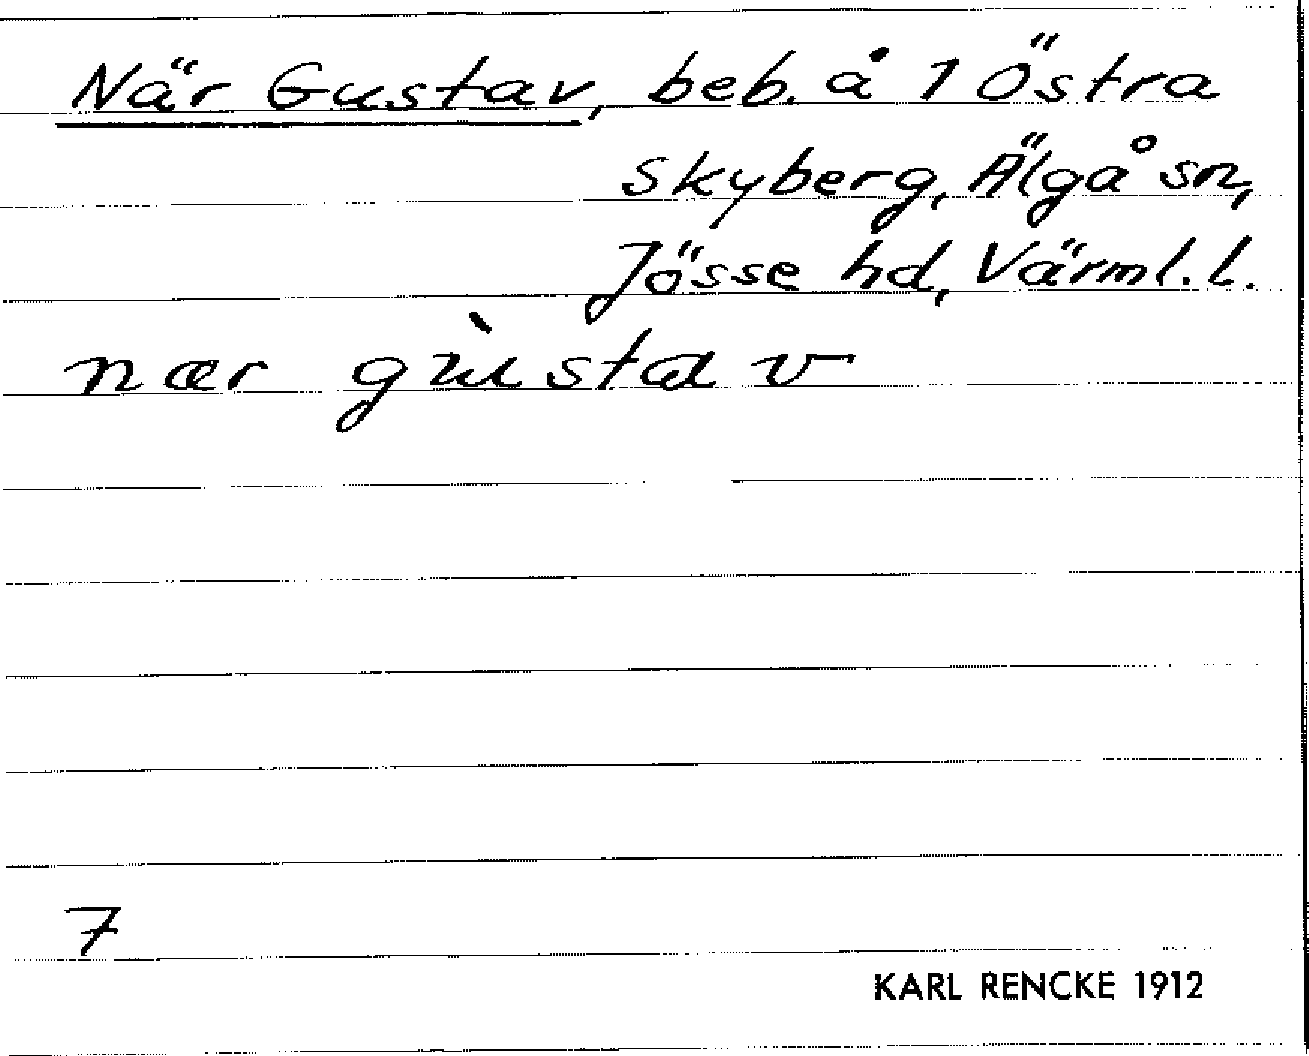 När Gustav, beb. å 1 Östra
Skyberg, Älgå sn,
Jösse hd, Värml. l.
nær gùstav
7
KARL RENCKE 1912